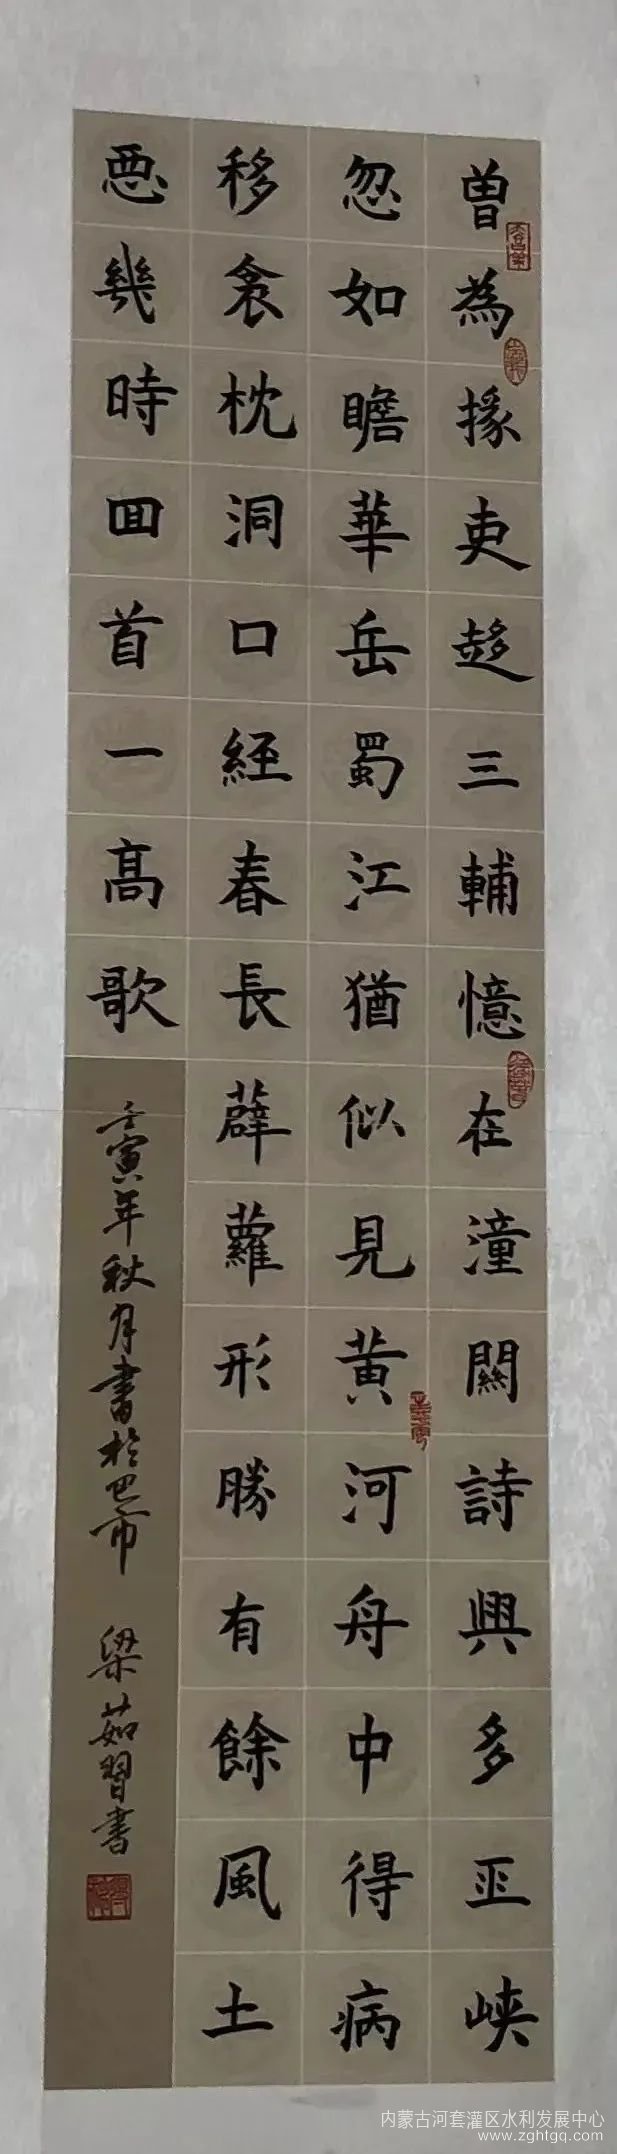 曾為掾吏趍三輔憶在潼關詩興多巫峽
忽如瞻華岳蜀江猶似見黄河舟中得病
移衾枕洞口經春長薜蘿形勝有餘風土
惡幾時回首一高歌
壬寅年秋月書於巴市 梁茹習書
内蒙古河套灌区水利发展中心
www.zghtgq.com